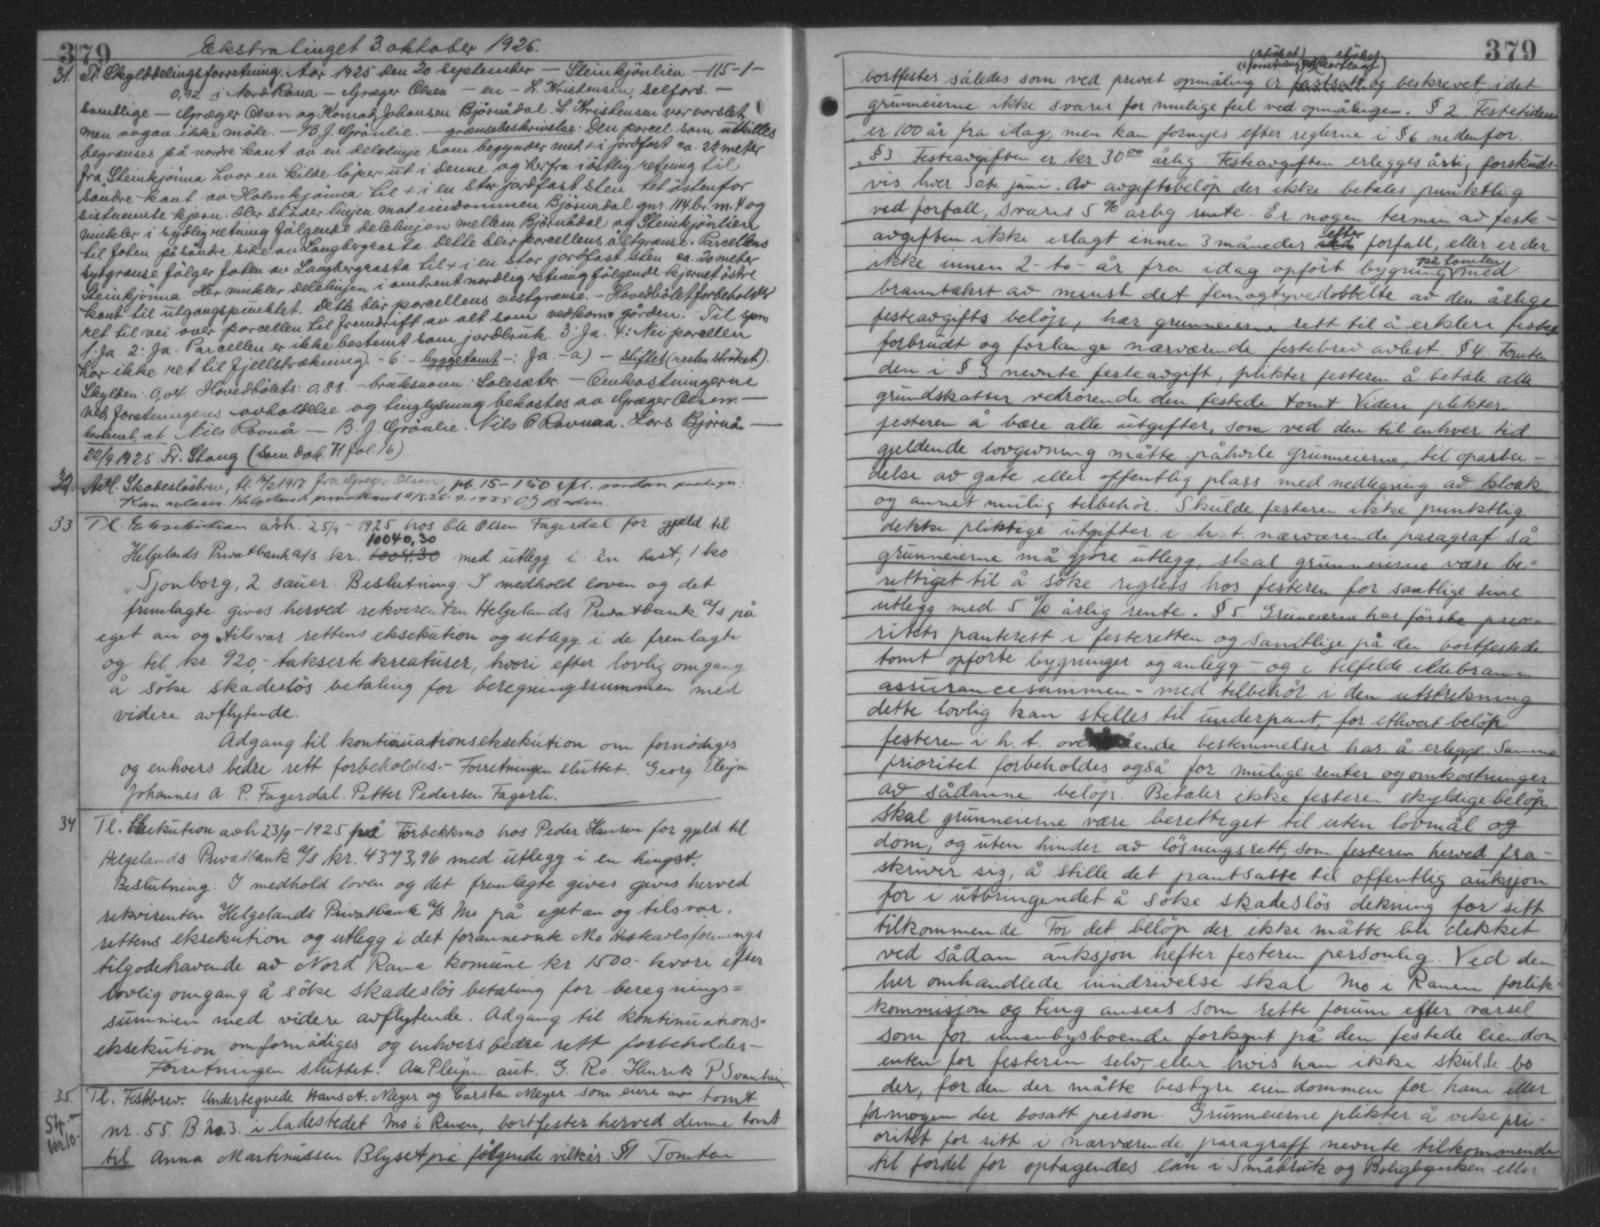 379
Ekstratinget 3. oktober 1925.
31. Tl. Skylddelingsforretning. Aar 1925 den 20 september — Steinkjönlien — 115-1-
0,92 i Nord Rana — Græger Olsen — en — L. Kristensen, Selfors. —
samtlige — Græger Olsen og Konrad Johansen Björnådal. L. Kristensen var varslet,
men ogaa ikke möte. — B. J. Grönlie. — grænsebeskrivelse: Den parcel som utskilles
begrænses på nordre kant av en delelinje som begynder med + i jordfast ca. 22 meter
fra Steinkjönna hvor en kilde löper ut i denne og herfra i östlig retning til
söndre kant av Holmkjönna til + i en stor jordfast sten tet östenfor
sistnevnte kjern. Her stöder linjen mot eiendommen Björnådal gnr. 114 br. nr. 4 og
vinkler i sydlig retning følgende delelinjen mellem Björnådal og Steinkjönlien
til foten på söndre side av Langbergrasta. Dette blir parcellens östgrænse. Parcellens
sydgrænse følger foten av Langbergrasta til + i en stor jordfast sten ca. 20 meter
Steinkjönna. Her vinkler delelinjen i omtrent nordlig retning følgende kjernet östre
kant til utgangspunktet. Dette blir parcellens vestgrænse. — Hovedbölet forbeholder
ret til vei over parcellen til fremdrift av alt som vedkom gården. Til spm
1: Ja. 2: Ja. Parcellen er ikke bestemt som jordbruk. 3: Ja. 4: Nei parcellen
har ikke ret til fjellstrækning. - 6: - byggetomt -: Ja. - a) — Skiftet (resten ströket).
Skylden: 0,04. Hovedbölets: 0,88. - bruksnavn: Solesæter — Omkostningerne
ved forretningens avholdelse og tinglysning bekostes av Græger Olsen. —
bestemt, at Nils Ravnå — B. J. Grönlie. Nils O Ravnaa. Lars Björnå —
22/9 1925 Fr. Stang (Som dok. 71 fol. 16)
32. Avl. Skadeslösbrev, tl. 1917 fra Græger Olsen, pb. 15-150
Kan avlæses. Helgelands privatbank a/s. 26-9-1925
33 Tl. Eksekution avh. 25/9 - 1925 hos Ole Olsen Fagerdal for gjeld til
10040,30
Helgelands Privatbank a/s kr. 1004.30 med utlegg i en hest, 1 ko
"Tjonborg, 2 sauer. Beslutning: I medhold loven og det
fremlagte gives herved rekvirenten Helgelands Privatbank a/s på
eget an og tilsvar rettens eksekution og utlegg i de fremlagte
og til kr. 920,- takserte kreaturer, hvori efter lovlig omgang
å söke skadeslös betaling for beregningssummen med
videre avflytende.
Adgang til kontinuationseksekution om fornödiges
og enhvers bedre rett forbeholdes. - Forretningen sluttet. Georg Pleym
Johannes A. P. Fagerdal. Petter Pedersen Fagerli.
34 Tl. Eksekution avh 23/9 - 1925 på Torbekkmo hos Peder Hansen for gjeld til
Helgelands Privatbank a/s kr. 4373,96 med utlegg i en hingst.
Beslutning: I medhold loven og det fremlagte gives gives herved
rekvirenten Helgelands Privatbank a/s Mo på eget an og tilsvar.
rettens eksekution og utlegg i det forannevnte Mo Hesteavlsforenings
tilgodehavende av Nord Rana komune kr 1500- hvori efter
lovlig omgang å söke skadeslös betaling for beregnings=
summen med videre avflytende. Adgang til kontinuations=
eksekution omfornödiges og enhvers bedre rett forbeholdes—
Forretningen sluttet. Pleym aut. G. Ro. Henrik P Svartvin
35. Tl. Festbrev. Undertegnede Hans A. Meyer og Carsten Meyer som eiere av tomt
nr. 55. B no 3. i ladestedet Mo i Ranen, bortfester herved denne tomt
til Anna Martinussen Blyset på følgende vilkår. §1 Tomten
379
bortfestes således som ved privat opmåling er fastsatt og beskrevet, idet
grunneierne ikke svarer for mulige feil ved opmålingen. § 2. Festetiden
er 100 år fra idag, men kan fornyes efter reglerne i § 6 nedenfor.
§ 3. Festeavgiften er kr 30 00 årlig. Festeavgiften erlegges årlig forskuds-
vis hver 3cte juni. Av avgiftsbelöp der ikke betales punktlig
ved forfall, svares 5 % årlig rente. Er nogen termin av feste-
avgiften ikke erlagt innen 3 måneder efter forfall, eller er der
ikke innen 2 - to - år fra idag opfört bygning på tomten med
branntakst av minst det femogtyvedobbelte av den årlige
festeavgifts belöp, har grunneierne rett til å erklere festet
forbrudt og forlange nærværende festebrev avlest. § 4 Foruten
den i § 3 nevnte festeavgift, plikter festeren å betale alle
grundskatter vedrörende den festede tomt Videre plikter
festeren å bære alle utgifter, som ved den til enhver tid
gjeldende lovgivning måtte påhvile grunneierne, til oparbei-
delse av gate eller offentlig plass med nedlegning av kloak
og annet mulig tilbehör. Skulde festeren ikke punktlig
dekke pliktige utgifter i h. t. nærværende paragraf så
grunneierne må gjöre utlegg, skal grunneierne være be=
rettiget til å söke regress hos festeren for samtlige sine
utlegg med 5 % årlig rente. § 5. Grunneierne har förste prio-
ritets panterett i festeretten og samtlige på den bortfestede
tomt opförte bygninger og anlegg - og i tilfelde ildebrann
assurancesummen - med tilbehör i den utstrekning
dette lovlig kan stilles til underpant, for ethvert belöp
festeren i h. t. ovenstående bestemmelser har å erlegge. Samme
prioritet forbeholdes også for mulige renter og omkostninger
av sådanne belöp. Betaler ikke festeren skyldige belöp
skal grunneierne være berettiget til uten lovmål og
dom, og uten hinder av lösningsrett, som festeren herved fra-
skriver sig, å stille det pantsatte til offentlig auksjon
for i utbringendet å söke skadeslös dekning for sitt
tilkommende. For det belöp der ikke måtte bli dekket
ved sådan auksjon hefter festeren personlig. Ved den
her omhandlede inndrivelse skal Mo i Ranen forlik-
kommisjon og ting ansees som rette forum efter varsel
som for innenbysboende forkynt på den festede eiendom
enten for festeren selv, eller hvis han ikke skulde bo
der, for den der måtte bestyre eiendommen for ham eller
for nogen der bosatt person. Grunneierne plikter å vike pri-
oritet for sitt i nærværende paragraff nevnte tilkommende
til fordel for optagendes lån i Småbruk og Boligbanken eller